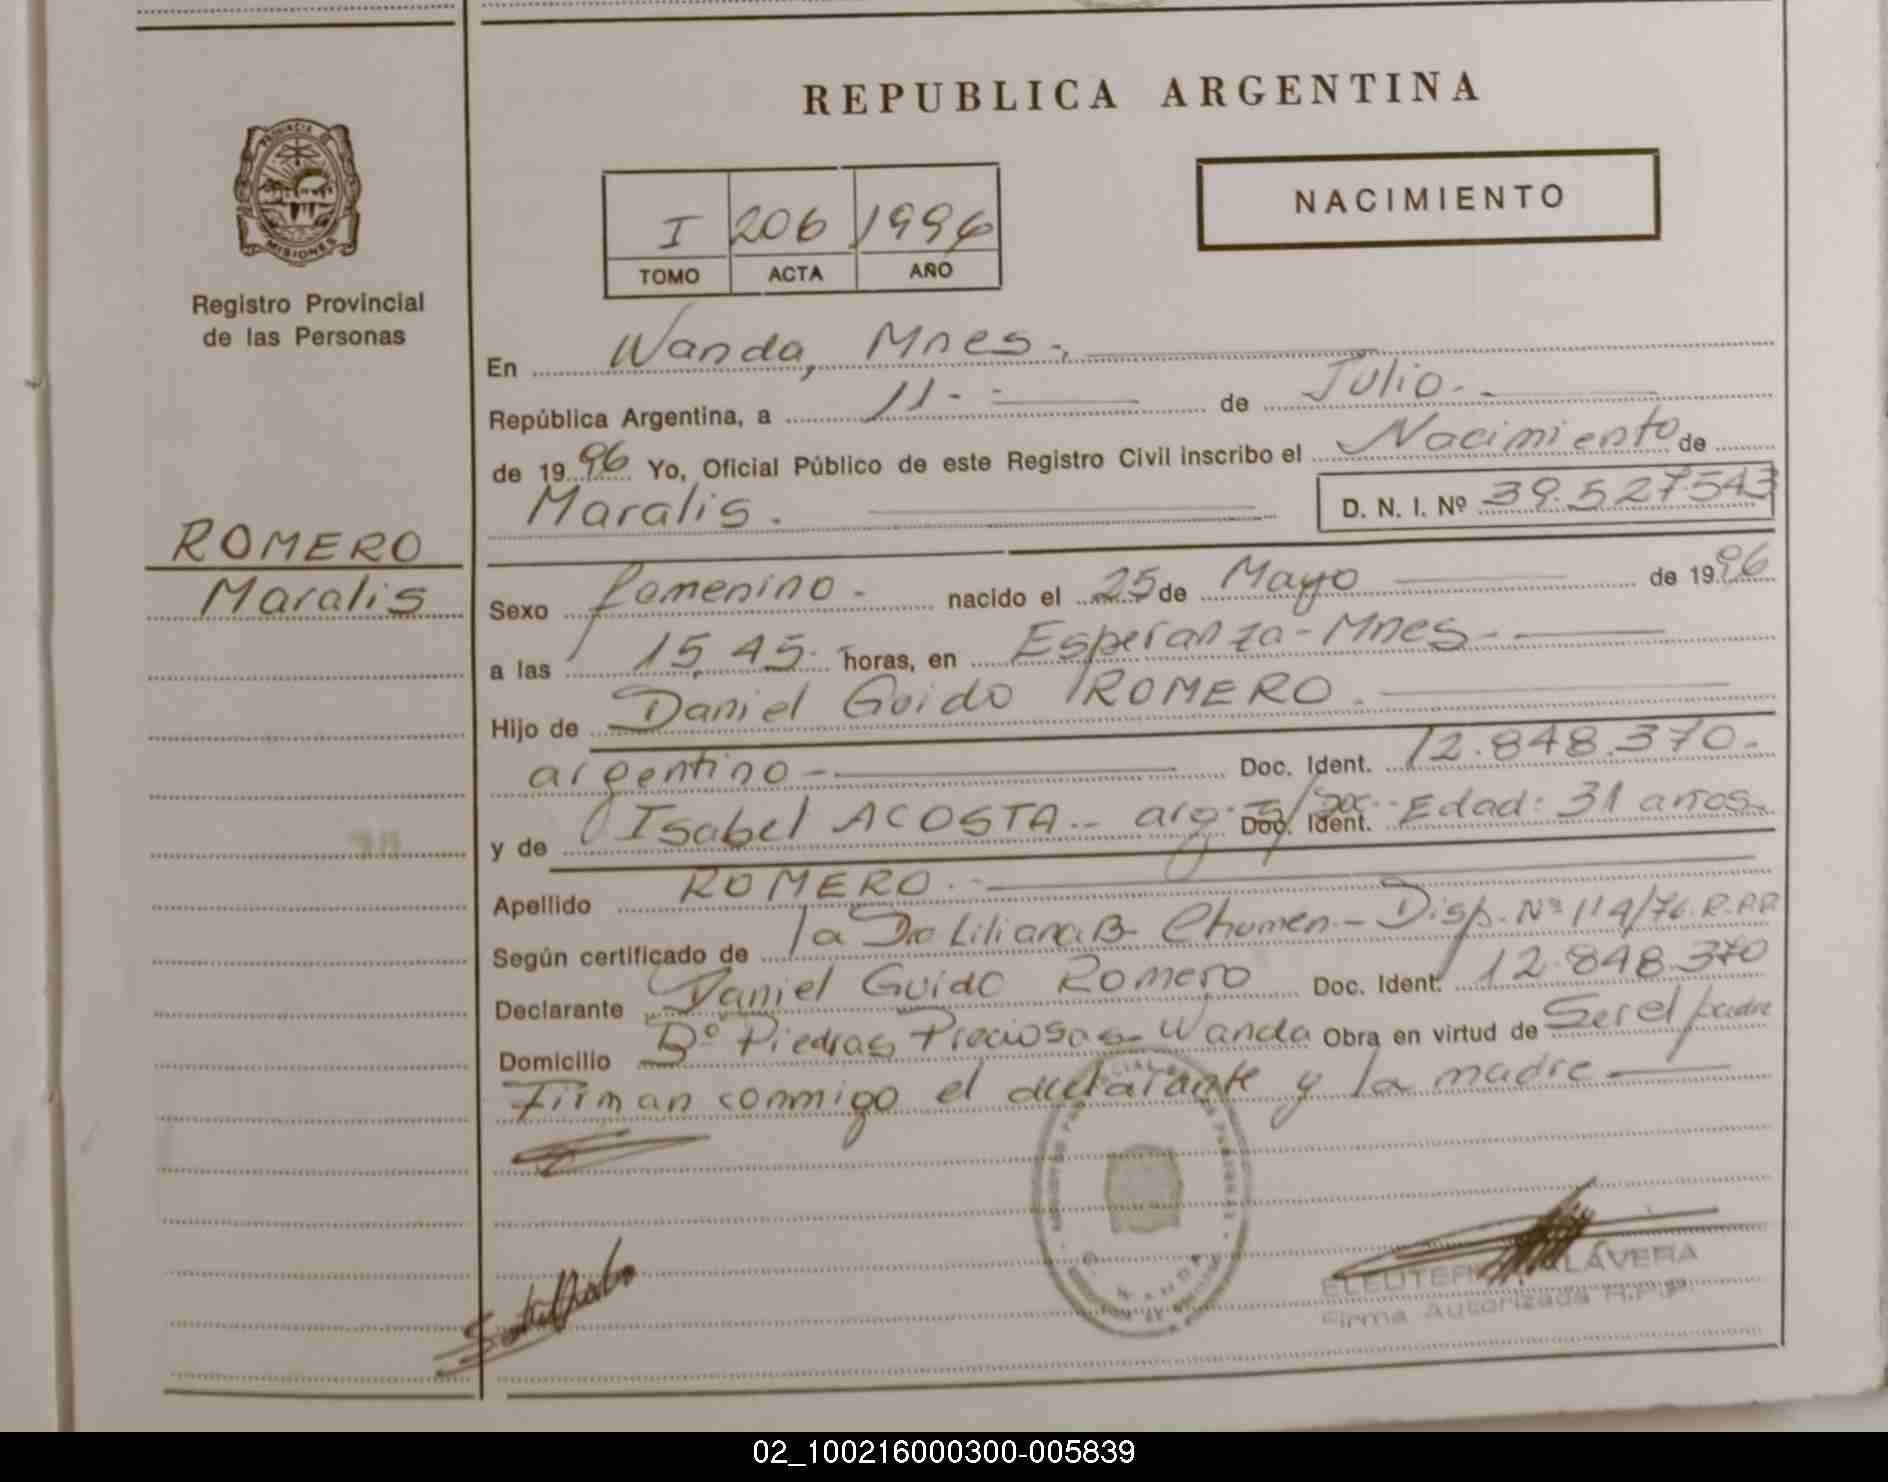 REPUBLICA ARGENTINA
PROVINCIA DE
MISIONES
Registro Provincial
de las Personas
I 206 1996
TOMO ACTA AÑO
NACIMIENTO
En Wanda, Mnes.
República Argentina, a 11 de Julio
de 1996 Yo, Oficial Público de este Registro Civil inscribo el Nacimiento de
Maralis. D. N. I. Nº 39.527.543
ROMERO
Maralis
Sexo femenino nacido el 25 de Mayo de 1996
a las 15,45 horas, en Esperanza - Mnes
Hijo de Daniel Guido ROMERO
argentino Doc. Ident. 12.848.370
y de Isabel ACOSTA arg. s/Doc. Doc. Ident. Edad: 31 años
Apellido ROMERO
Según certificado de la Dra Liliana B. Chumen - Disp. Nº 114/76 R.P.P.
Declarante Daniel Guido Romero Doc. Ident. 12.848.370
Domicilio Bº Piedras Preciosas - Wanda Obra en virtud de Ser el padre
Firman conmigo el declarante y la madre
WANDA
Firma Autorizada R.P.P.
02_100216000300-005839